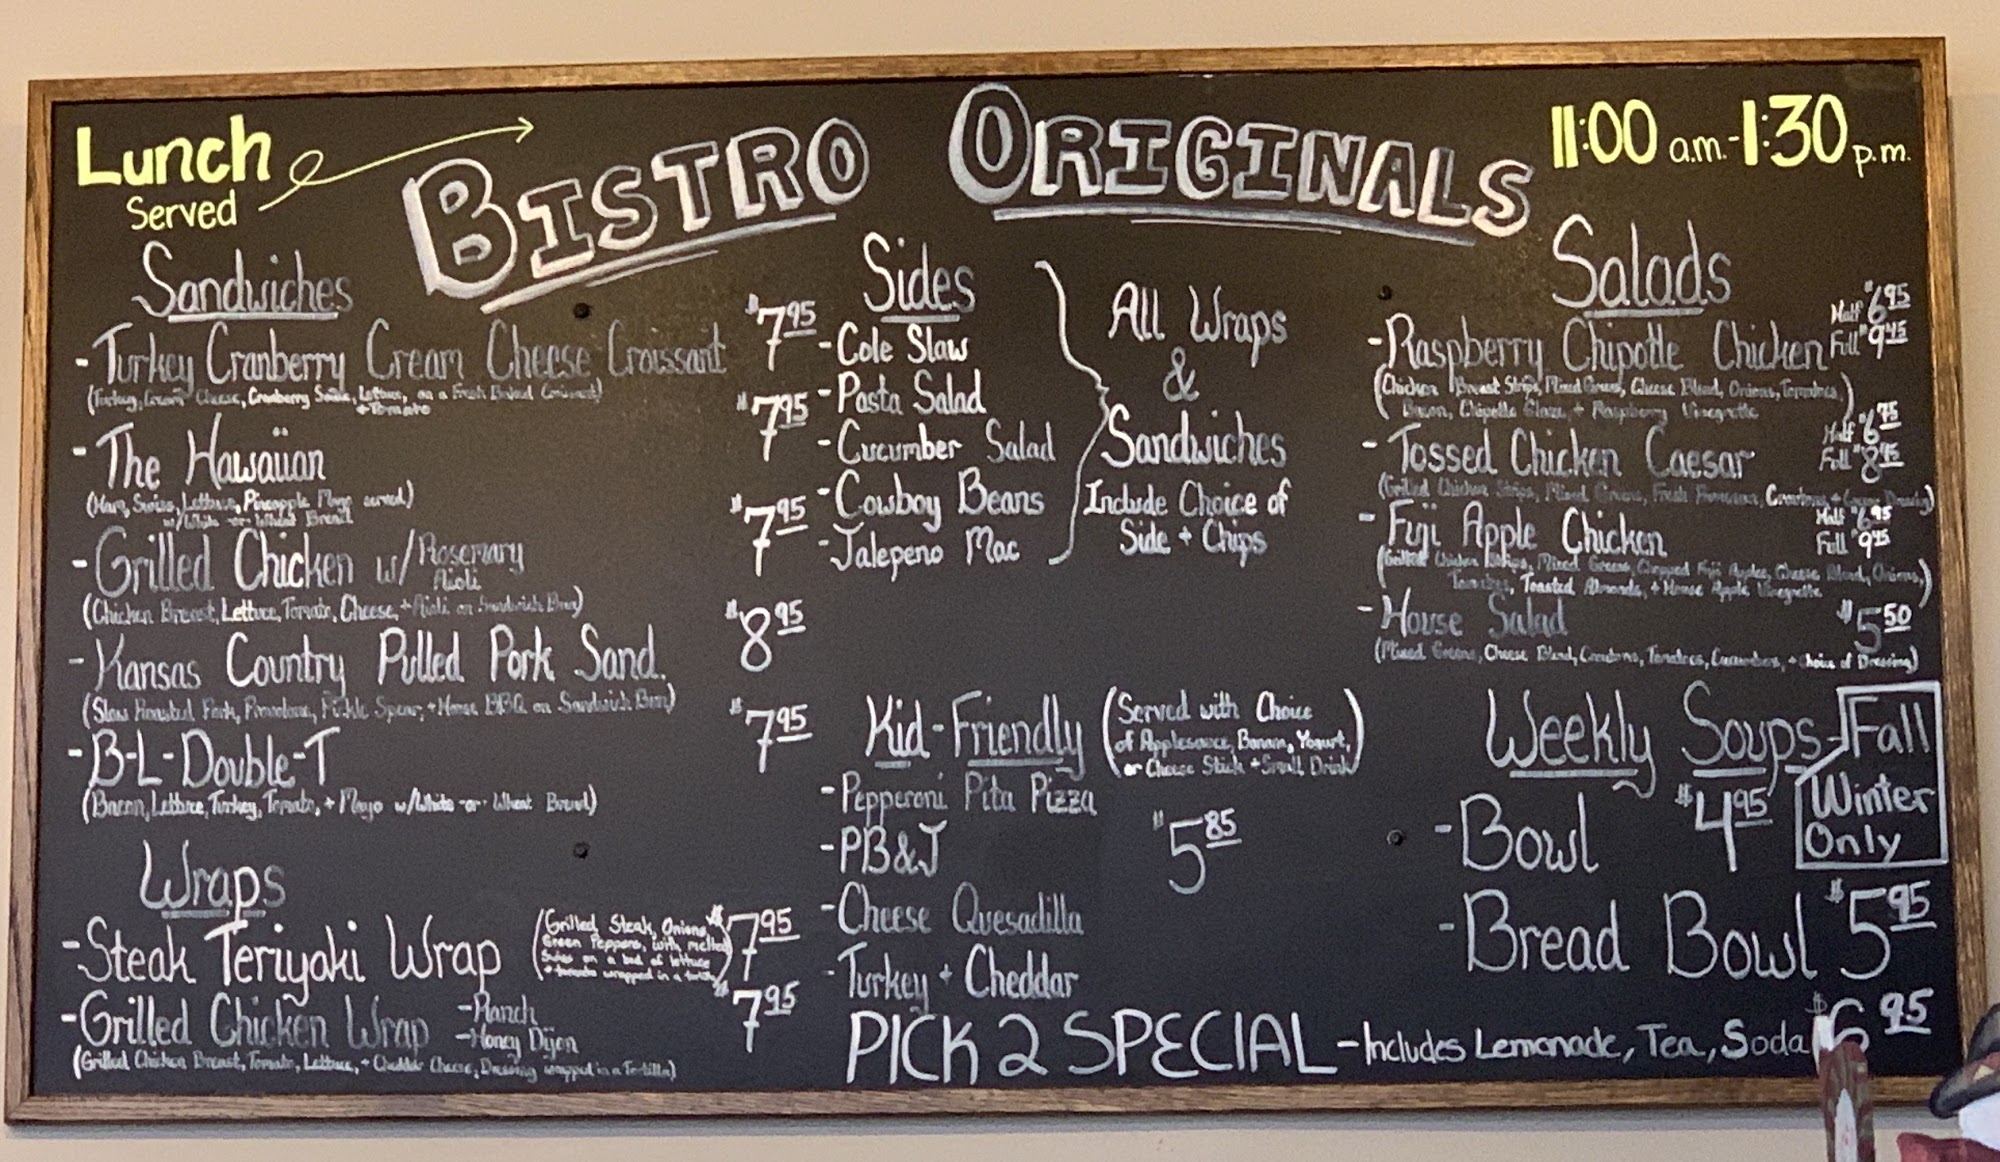 Lunch
Served
BISTRO ORIGINALS
11:00 a.m.-1:30 p.m.
Sandwiches
-Turkey Cranberry Cream Cheese Croissant $7.95
(Turkey, Cream Cheese, Cranberry Sauce, Lettuce, on a Fresh Baked Croissant)
+Tomato
-The Hawaiian $7.95
(Ham, Swiss, Lettuce, Pineapple Mayo served)
w/White -or- Wheat Bread
-Grilled Chicken w/Rosemary $7.95
Aioli
(Chicken Breast, Lettuce, Tomato, Cheese, +Aioli on Sandwich Bun)
-Kansas Country Pulled Pork Sand. $8.95
(Slow Roasted Pork, Provolone, Pickle Spear, +House BBQ on Sandwich Bun)
-B-L-Double-T $7.95
(Bacon, Lettuce, Turkey, Tomato, + Mayo w/White -or- Wheat Bread)
Wraps
-Steak Teriyaki Wrap $7.95
(Grilled Steak, Onions,
Green Peppers, with melted
Swiss on a bed of lettuce
+ tomato wrapped in a
-Grilled Chicken Wrap $7.95
-Ranch
-Honey Dijon
(Grilled Chicken Breast, Tomato, Lettuce, + Cheddar Cheese, Dressing wrapped in a Tortilla)
Sides
-Cole Slaw
-Pasta Salad
-Cucumber Salad
-Cowboy Beans
-Jalepeno Mac
All Wraps
&
Sandwiches
Include Choice of
Side + Chips
Kid-Friendly
(Served with Choice
of Applesauce, Banana, Yogurt,
or Cheese Stick + Small Drink)
-Pepperoni Pita Pizza
-PB&J
$5.85
-Cheese Quesadilla
-Turkey + Cheddar
Salads
-Raspberry Chipotle Chicken Half $6.95
Full $9.45
(Chicken Breast Strips, Mixed Greens, Cheese Blend, Onions, Tomatoes,
Bacon, Chipotle Glaze, + Raspberry Vinegrette)
-Tossed Chicken Caesar Half $6.75
Full $8.95
(Grilled Chicken Strips, Mixed Greens, Fresh Parmesan, Croutons, + Caesar Dressing)
-Fuji Apple Chicken Half $6.95
Full $9.45
(Grilled Chicken Strips, Mixed Greens, Chopped Fuji Apples, Cheese Blend, Onions,
Tomatoes, Toasted Almonds, + House Apple Vinegrette)
-House Salad $5.50
(Mixed Greens, Cheese Blend, Croutons, Tomatoes, Cucumbers, + Choice of Dressing)
Weekly Soups
Fall
Winter
Only
-Bowl $4.95
-Bread Bowl $5.95
PICK 2 SPECIAL -Includes Lemonade, Tea, Soda $6.95